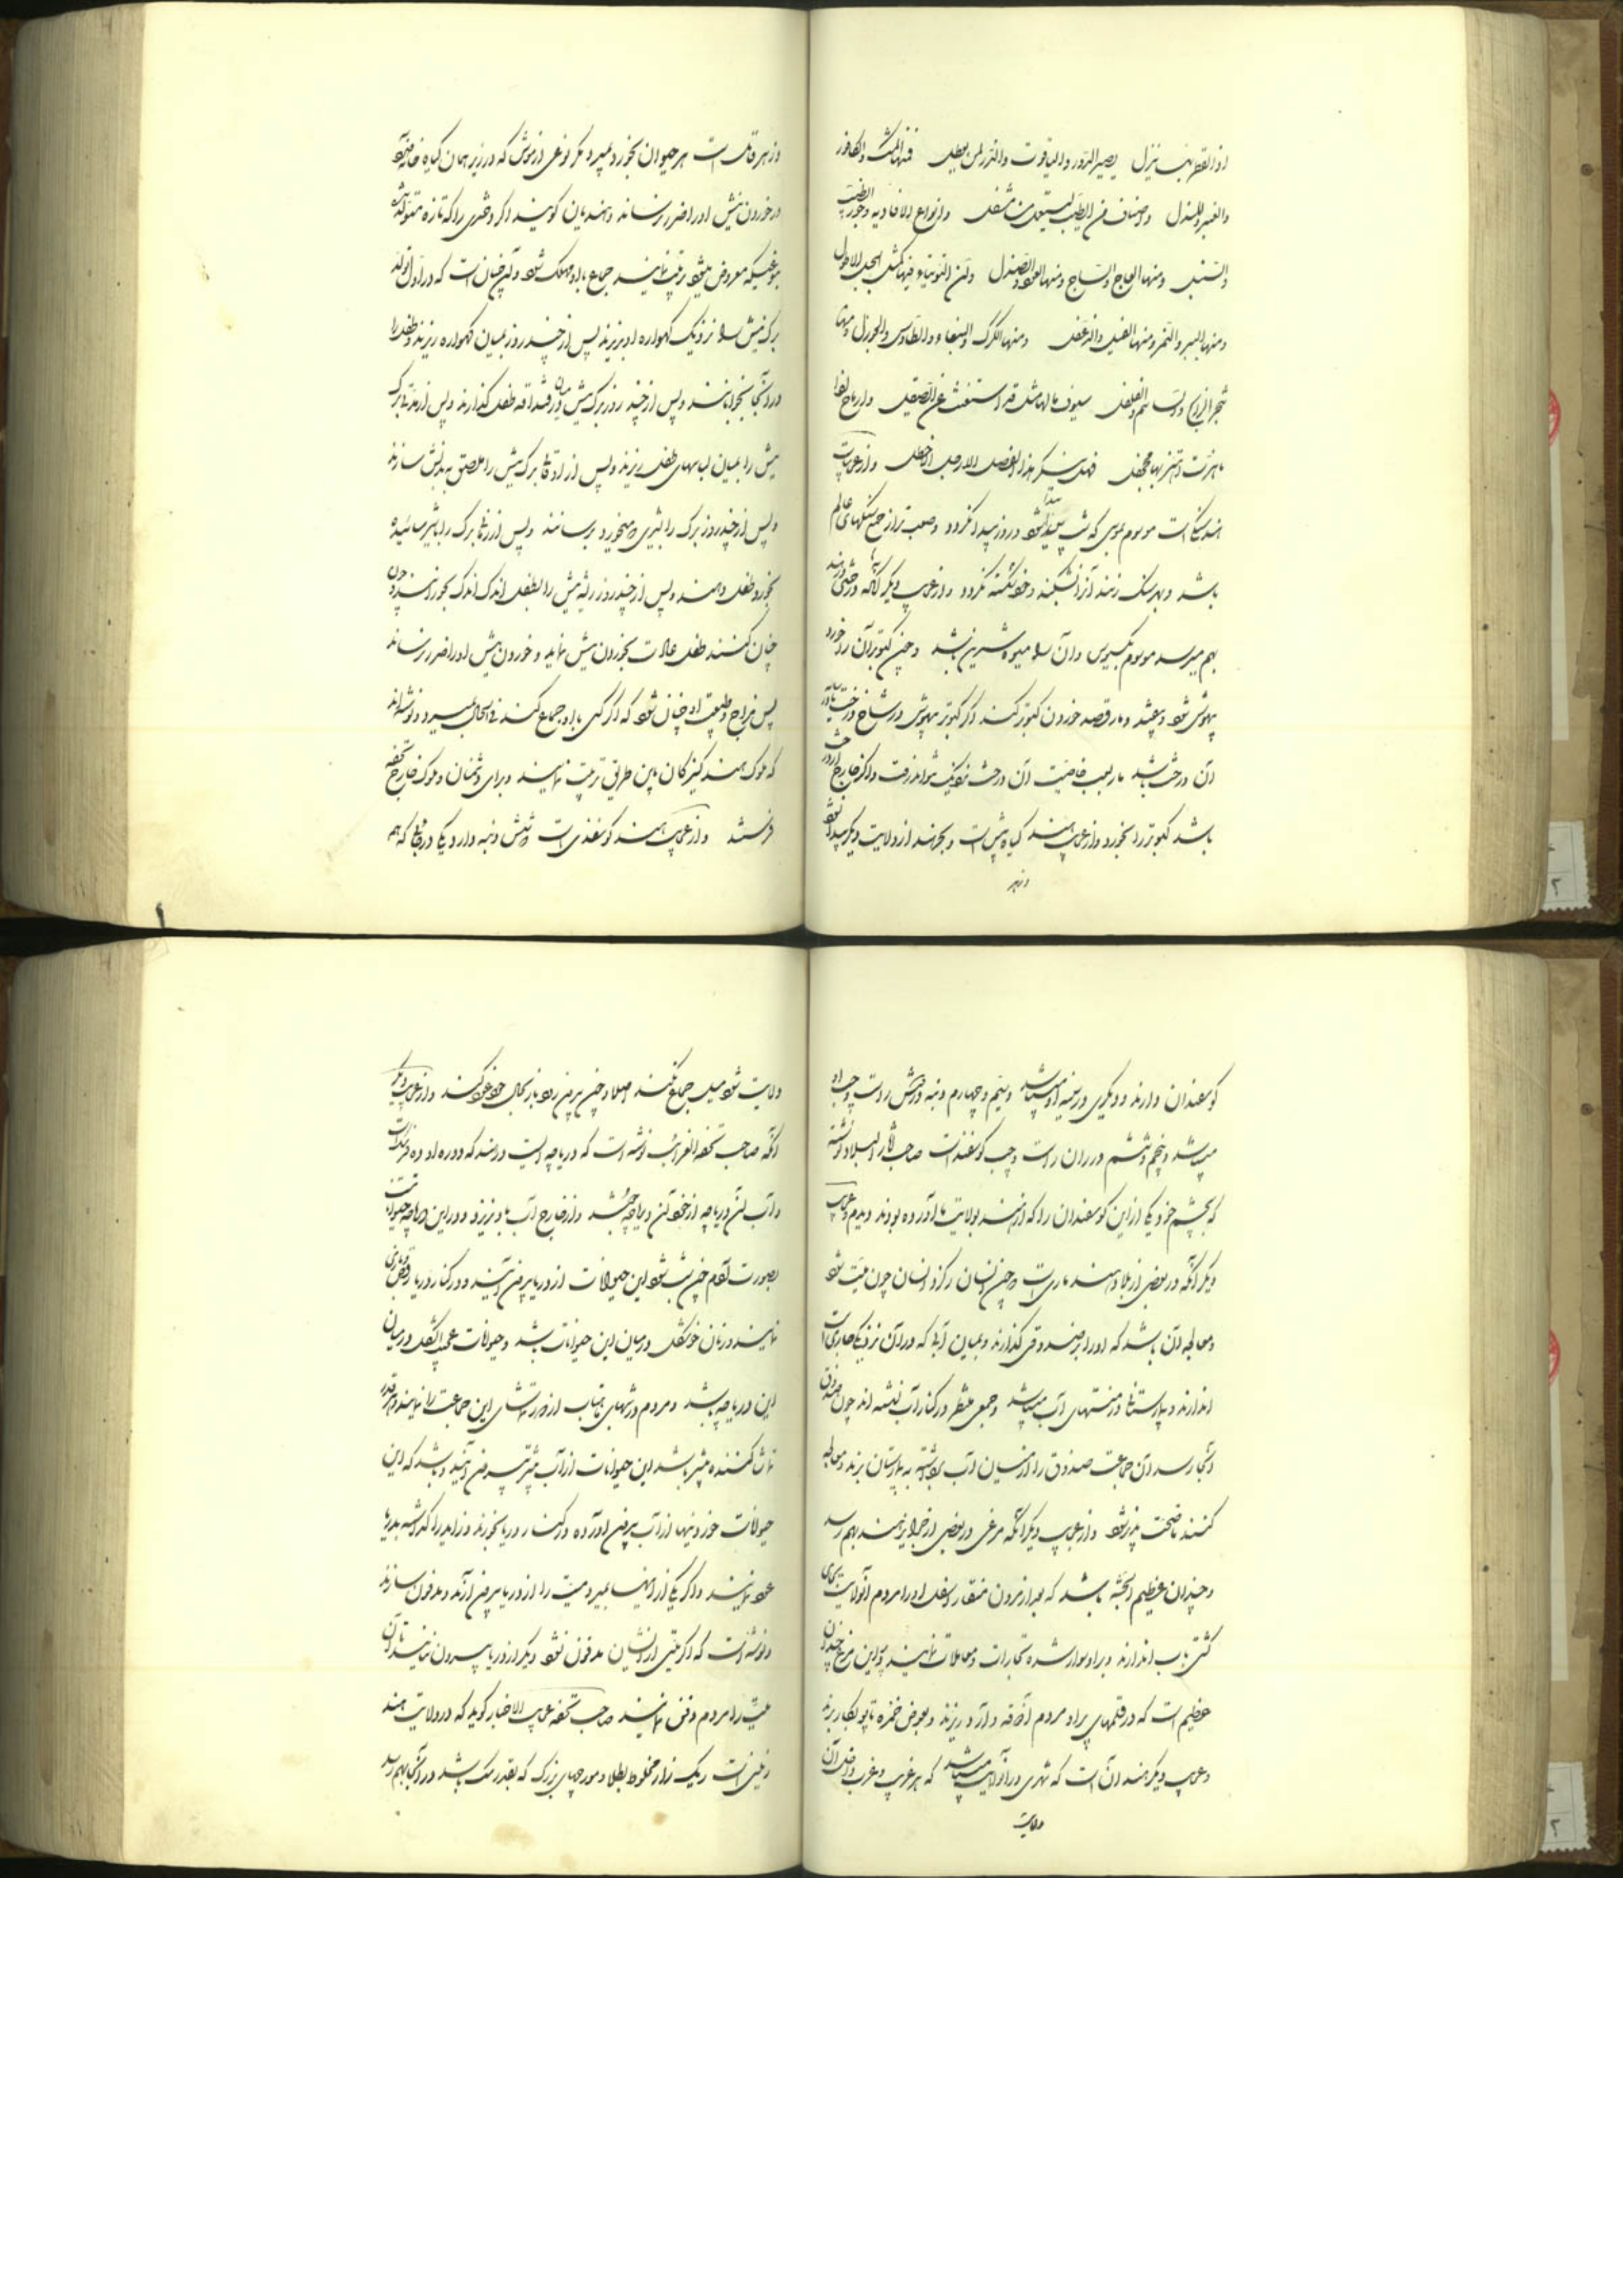 اذا القطر بها ینزل یصیر الدر والیاقوت والدر لمن یعطل فمنها المسک والکافور
والعنبر والمندل واصناف من الطیب لیستعمل من یتفل وانواع الافاویه وجوز الطیب
والسنبل ومنها العاج والساج ومنها العود والصندل وان التوتیاء فیها کمثل الجبل الاطول
ومنها الببر والنمر ومنها الفیل والدغفل ومنها الکرک والببغاء والطاوس والجوزل ومنها
شجر الرانج والساسم والفلفل سیوف مالها مثل قد استغنت عن الصیقل وارماح اذا
ما هزت اهتز بها الجحفل فهل ینکر هذا الفضل الا الرجل الاخطل و از عجایب
هند سنگی است موسوم بموسی که شب پیدا شود و در روز پیدا نگردد و صعب‌تر از جمیع سنگهای عالم
باشد و بهر سنگ زنند آنرا بشکند و خود شکسته نگردد و از عجایب دیگر آنکه درختی در هند
بهم میرسد موسوم بکسیوس و آن را میوه شیرین باشد و چون کبوتر آن را خورد
بیهوش شود و بیفتد و مار قصد خوردن کبوتر کند اگر کبوتر بیهوش در شاخ درخت یا در سایه
آن درخت باشد مار بسبب خاصیت آن درخت نزدیک نتواند رفت و اگر خارج از درخت
باشد کبوتر را بخورد و از عجایب هند گیاه بیش است و بجز هند از ولایت دیگر پیدا نشود
و زهر
و زهر قاتل است هر حیوان بخورد بمیرد مگر نوعی از موش که در زیر همان گیاه خانه
و خوردن بیش او را ضرر نرساند و هندیان گویند اگر دختری را که تازه متولد شده
بنوعیکه معروض میشود تربیت نمایند جماع با او مهلک شود و آن چنان است که در اول تولد
برگ بیش را نزدیک گهواره او بریزند پس از چند روز بمیان گهواره ریزند و طفل را
در آنجا بخوابانند و پس از چند روز برگ بیش را در میان قنداقه طفل گذارند و پس از مدتی برگ
بیش را بمیان لباسهای طفل ریزند و پس از اوقات برگ بیش را ملاصق بدنش سازند
و پس از چند روز برگ را بشیری که میخورد برسانند و پس از زمان برگ را با شیر سائیده
بخورد طفل دهند و پس از چند روز ریشه بیش را بطفل اندک اندک بخورانند و چون
چنان کنند طفل عادت بخوردن بیش نماید و خوردن بیش او را ضرر نرساند
پس مزاج و طبیعت او چنان شود که اگر کسی با او جماع کند فی الحال بمیرد و نوشته اند
که ملوک هند کنیزکان باین طریق تربیت نمایند و برای دشمنان و ملوک خارج تحفه
فرستند و از عجایب هند گوسفندی است که شش دنبه دارد یکی در جائی که همه
گوسفندان دارند و دیگری در سینه او میباشد و سیم و چهارم دنبه در کتف راست و چپ او
میباشد و پنجم و ششم در ران راست و چپ گوسفند است صاحب آثار البلاد نوشته
که بچشم خود یکی از این گوسفندان را که از هند بولایت ما آورده بودند دیدم و عجایب
دیگر آنکه در بعضی از بلاد هند ماری است که چون انسان را گزد انسان چون میت شود
و معالجه آن باشد که او را بر صندوقی گذارند و بمیان آبی که در آن نزدیکی جاری است
اندازند و بیمارستانها در منتهای آب میباشد و جمعی منتظر در کنار آب نشسته اند چون صندوق
آنجا رسد آن جماعت صندوق را از میان آب برداشته به بیمارستان برند و معالجه
کنند تا صحت پذیر شود و از عجایب دیگر آنکه مرغی در بعضی از جزایر هند بهم رسد
و چندان عظیم الجثه باشد که بعد از مردن منقار اسفل او را مردم آنولایت بجای
کشتی بآب اندازند و بر او سوار شده تجارات و معاملات نمایند و پر این مرغ چندان
عظیم است که در قلمهای پر او مردم آذوقه و آرد ریزند و بعوض خمره تاپو بکار برند
و عجایب دیگر هند آن است که شهری در آنولایت میباشد که هر غریب و غرب داخل آن
ولایت
ولایت شود میل جماع نکند اصلا و چون بیرون رود باز بحال خود عود کند و از عجایب دیگر
آنکه صاحب تحفة الغرائب نوشته است که دریاچه ایست در هند که دوره او ده فرسنگ است
و آب آن دریاچه از خود آن دریاچه جوشد و از خارج آب باو نریزد و در این دریاچه حیواناتست
بصورت آدم چون شب شود این حیوانات از دریا بیرون آیند و در کنار دریا رقص و بازی
نمایند و زنان خوشگل در میان این حیوانات باشند و حیوانات عجیب الشکل در میان
این دریاچه باشد و مردم در شبهای مهتاب از دور تماشای این جماعت را نمایند و هر قدر
تماشا کننده بیشتر باشد این حیوانات از آب بیشتر بیرون آیند و باشد که این
حیوانات خوردنیها از آب بیرون آورده در کنار دریا بخورند و زاید را گذاشته بدریا
عود نمایند و اگر یکی از اینها بمیرد میت را از دریا بیرون آرند و مدفون سازند
و نوشته است که اگر میتی از ایشان مدفون نشود دیگر از دریا بیرون نیایند تا آن
میت را مردم دفن نمایند صاحب تحفه عجایب الاخبار گوید که در ولایت هند
زمینی است ریگ زار مخلوط بطلا و مورچهای بزرگ که بقدر سگ باشد در آنجا بهم رسد